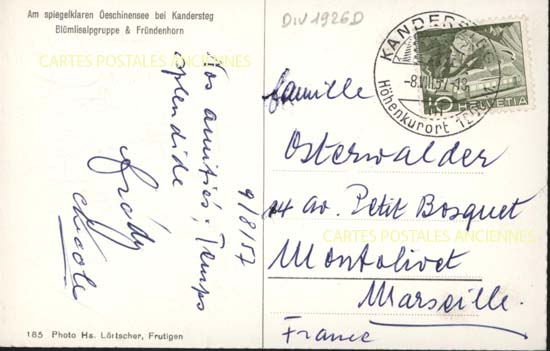 Am spiegelklaren Oeschinensee bei Kandersteg
Blümlisalpgruppe & Fründenhorn
Div 1926D
CARTES POSTALES ANCIENNES
9/8/57
Nos amitiés, Temps
splendide
Nicole
185 Photo Hs. Lörtscher, Frutigen
KANDERSTEG
-8.VIII.57-
Höhenkurort
10 HELVETIA
famille
Osterwalder
14 av. Petit Bosquet
CARTES POSTALES ANCIENNES
Montolivet
Marseille.
France